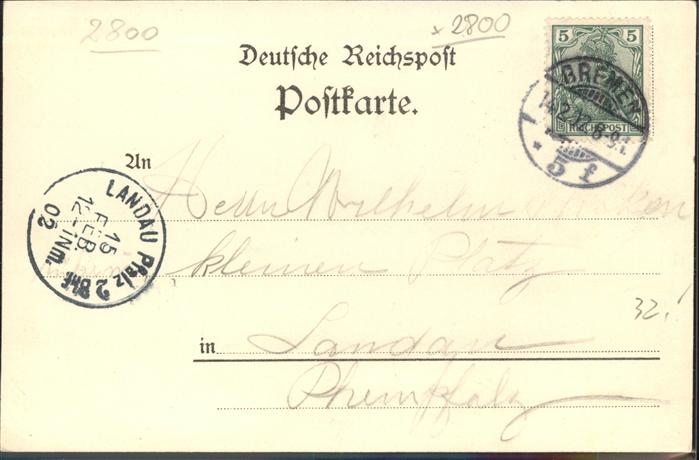 2800
x 2800
Deutsche Reichspost
Postkarte.
5 5
REICHSPOST
BREMEN
14.2.02. 8-9
* 5 f
An
Herrn Wilhelm
kleinen Platz
in Landau
Rheinpfalz
32.
LANDAU Pfalz 2 Bhf
15
FEB.
12-1 Nm.
02